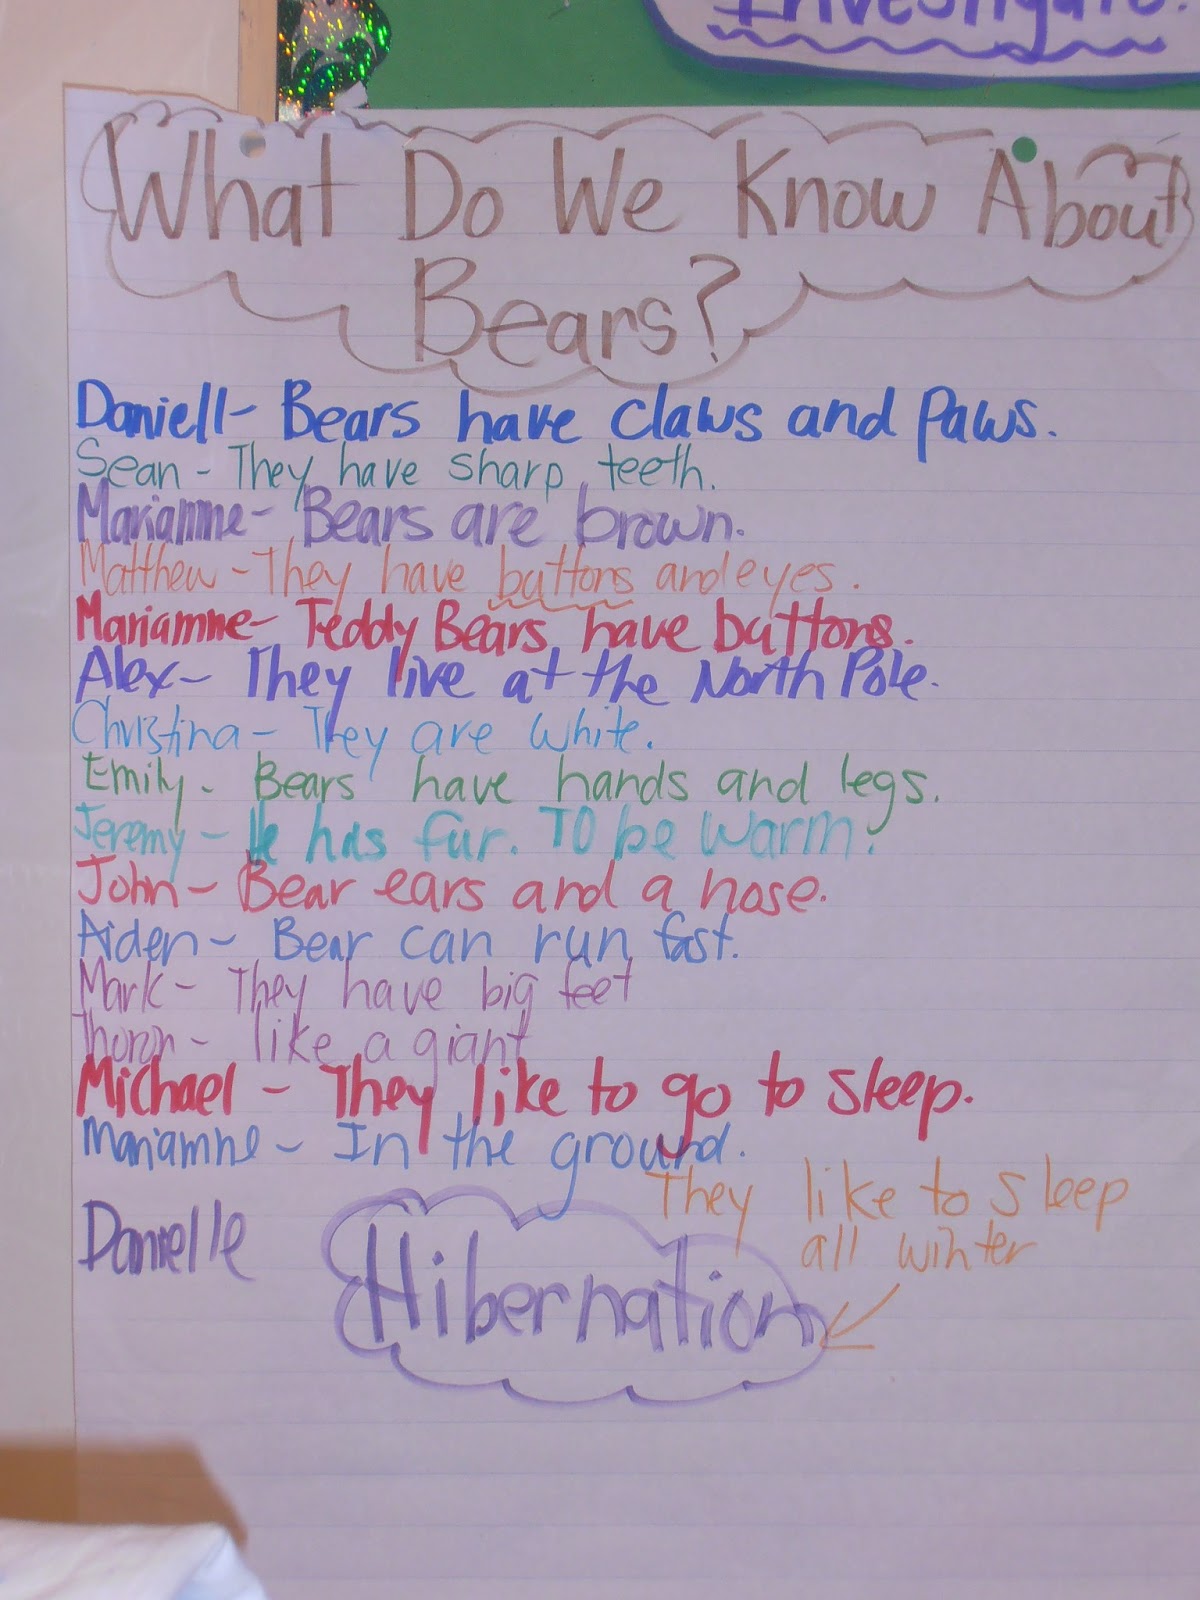 Investigate!
What Do We Know About
Bears?
Daniell- Bears have claws and paws.
Sean - They have sharp teeth.
Mariamne- Bears are brown.
Matthew - They have buttons and eyes.
Mariamne- Teddy Bears have buttons.
Alex- They live at the North Pole.
Christina - They are white.
Emily. Bears have hands and legs.
Jeremy - He has fur. To be warm.
John - Bear ears and a nose.
Aiden - Bear can run fast.
Mark - They have big feet
- like a giant
Michael - They like to go to sleep.
Mariamne - In the ground.
They like to sleep
all winter
Danielle Hibernation